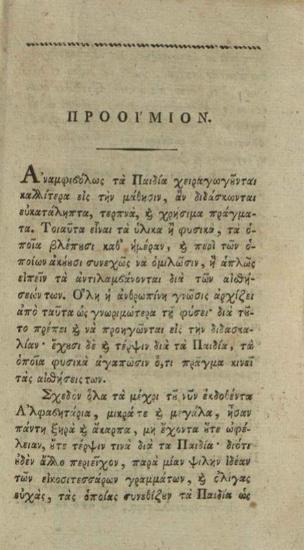 ΠΡΟΟΙ΄ΜΙΟΝ.
Αναμφιβόλως τὰ Παιδία χειραγωγȣ̃νται
καλλίτερα εἰς τὴν μάθησιν, ἂν διδάσκωνται
εὐκατάληπτα, τερπνὰ, ϗ̀ χρήσιμα πράγμα-
τα. Τοιαῦτα εἶναι τὰ ὑλικὰ ἢ φυσικὰ, τὰ ὁ-
ποῖα βλέπȣσι καθ' ἡμέραν, ϗ̀ περὶ τῶν ὁ-
ποίων ἀκȣ́ȣσι συνεχῶς νὰ ὁμιλῶσιν, ἢ ἁπλῶς
εἰπεῖν τὰ ἀντιλαμβάνονται διὰ τῶν αἰσθή-
σεών των. Ὅλη ἡ ἀνθρωπίνη γνῶσις ἀρχίζει
ἀπὸ ταῦτα ὡς γνωριμώτερα τῇ φύσει· διὰ τȣ̃-
το πρέπει ϗ̀ νὰ προηγῶνται εἰς τὴν διδασκα-
λίαν· ἔχȣσι δὲ ϗ̀ τέρψιν διὰ τὰ Παιδία, τὰ
ὁποῖα φυσικὰ ἀγαπῶσιν ὅ,τι πρᾶγμα κινεῖ
τὰς αἰσθήσεις των.
Σχεδὸν ὅλα τὰ μέχρι τȣ̃ νῦν ἐκδοθέντα
Ἀλφαβητάρια, μικρά τε ϗ̀ μεγάλα, ἦσαν
πάντη ξηρὰ ϗ̀ ἄκαρπα, μὴ ἔχοντα ȣ̓́τε ὠφέ-
λειαν, ȣ̓́τε τέρψιν τινὰ διὰ τὰ Παιδία· διότι
ȣ̓δὲν ἄλλο περιεῖχον, παρὰ μίαν ψιλὴν ἰδέαν
τῶν εἰκοσιτεσσάρων γραμμάτων, ϗ̀ ὀλίγας
εὐχὰς, τὰς ὁποίας συνεβίζον τὰ Παιδία ὡς